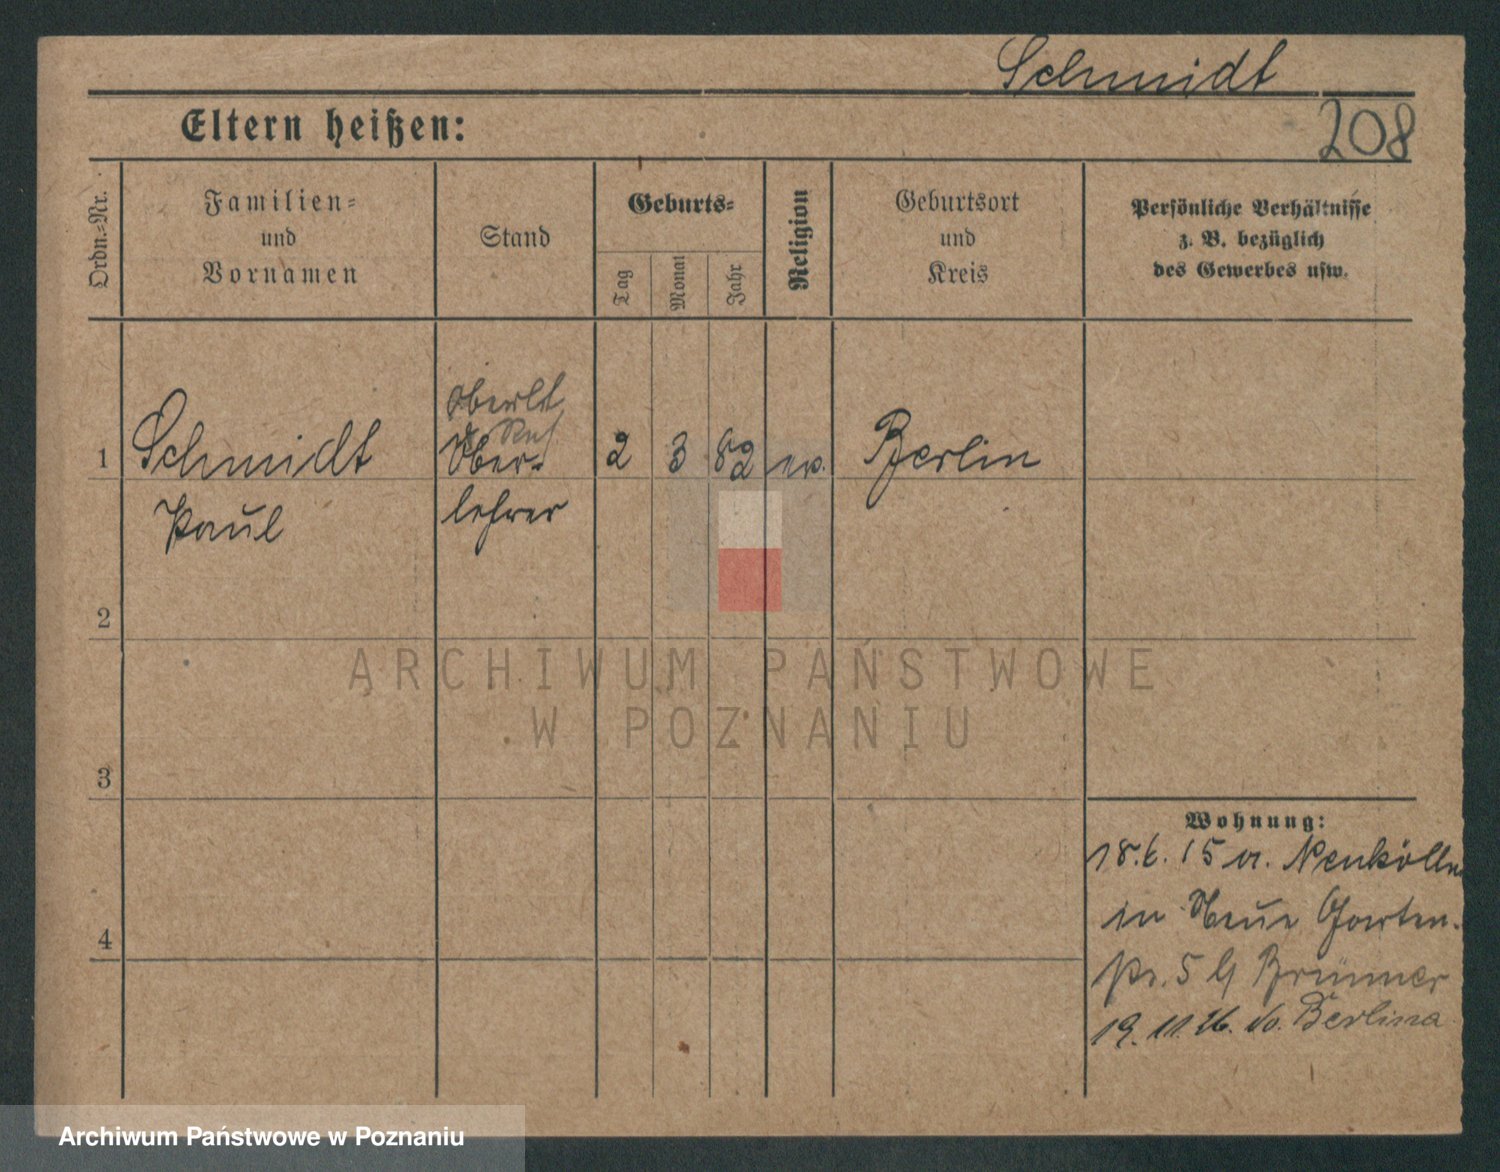 Schmidt
208
Eltern heißen:
Ordn.-Nr.
Familien-
und
Vornamen
Stand
Geburts-
Tag
Monat
Jahr
Religion
Geburtsort
und
Kreis
Persönliche Verhältnisse
z. B. bezüglich
des Gewerbes usw.
Oberlt
1 Schmidt Ober- 2 3 82 ev. Berlin
Paul lehrer
2
3
4
Wohnung:
18.6.15 a. Neukölln
in Neue Garten-
str. 5 b/ Brümmer
19.11. Berlin
ARCHIWUM PAŃSTWOWE
W POZNANIU
Archiwum Państwowe w Poznaniu